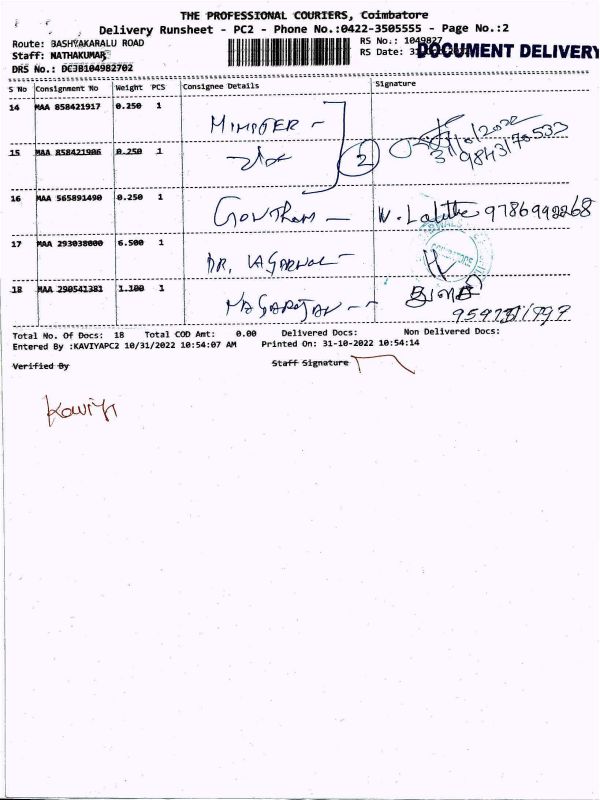 THE PROFESSIONAL COURIERS, Coimbatore
Delivery Runsheet - PC2 - Phone No.:0422-3505555 - Page No.:2
Route: BASHYAKARALU ROAD
RS No.: 1049827
Staff: NATHAKUMAR
RS Date: 31
DOCUMENT DELIVERY
DRS No.: DCJB104982702
S No Consignment No Weight PCS Consignee Details Signature
14 MAA 858421917 0.250 1
31/10/2022
9843170533
15 MAA 858421906 0.250 1
2
16 MAA 565891490 0.250 1 GOWTHAM - W. Lalitha 9786992268
17 MAA 293038000 6.500 1 DR. VAGARWAL -
18 MAA 290541381 1.100 1 NAGARAJAN - -
Total No. Of Docs: 18 Total COD Amt: 0.00 Delivered Docs: Non Delivered Docs:
Entered By :KAVIYAPC2 10/31/2022 10:54:07 AM Printed On: 31-10-2022 10:54:14
Verified By Staff Signature
Kaviya